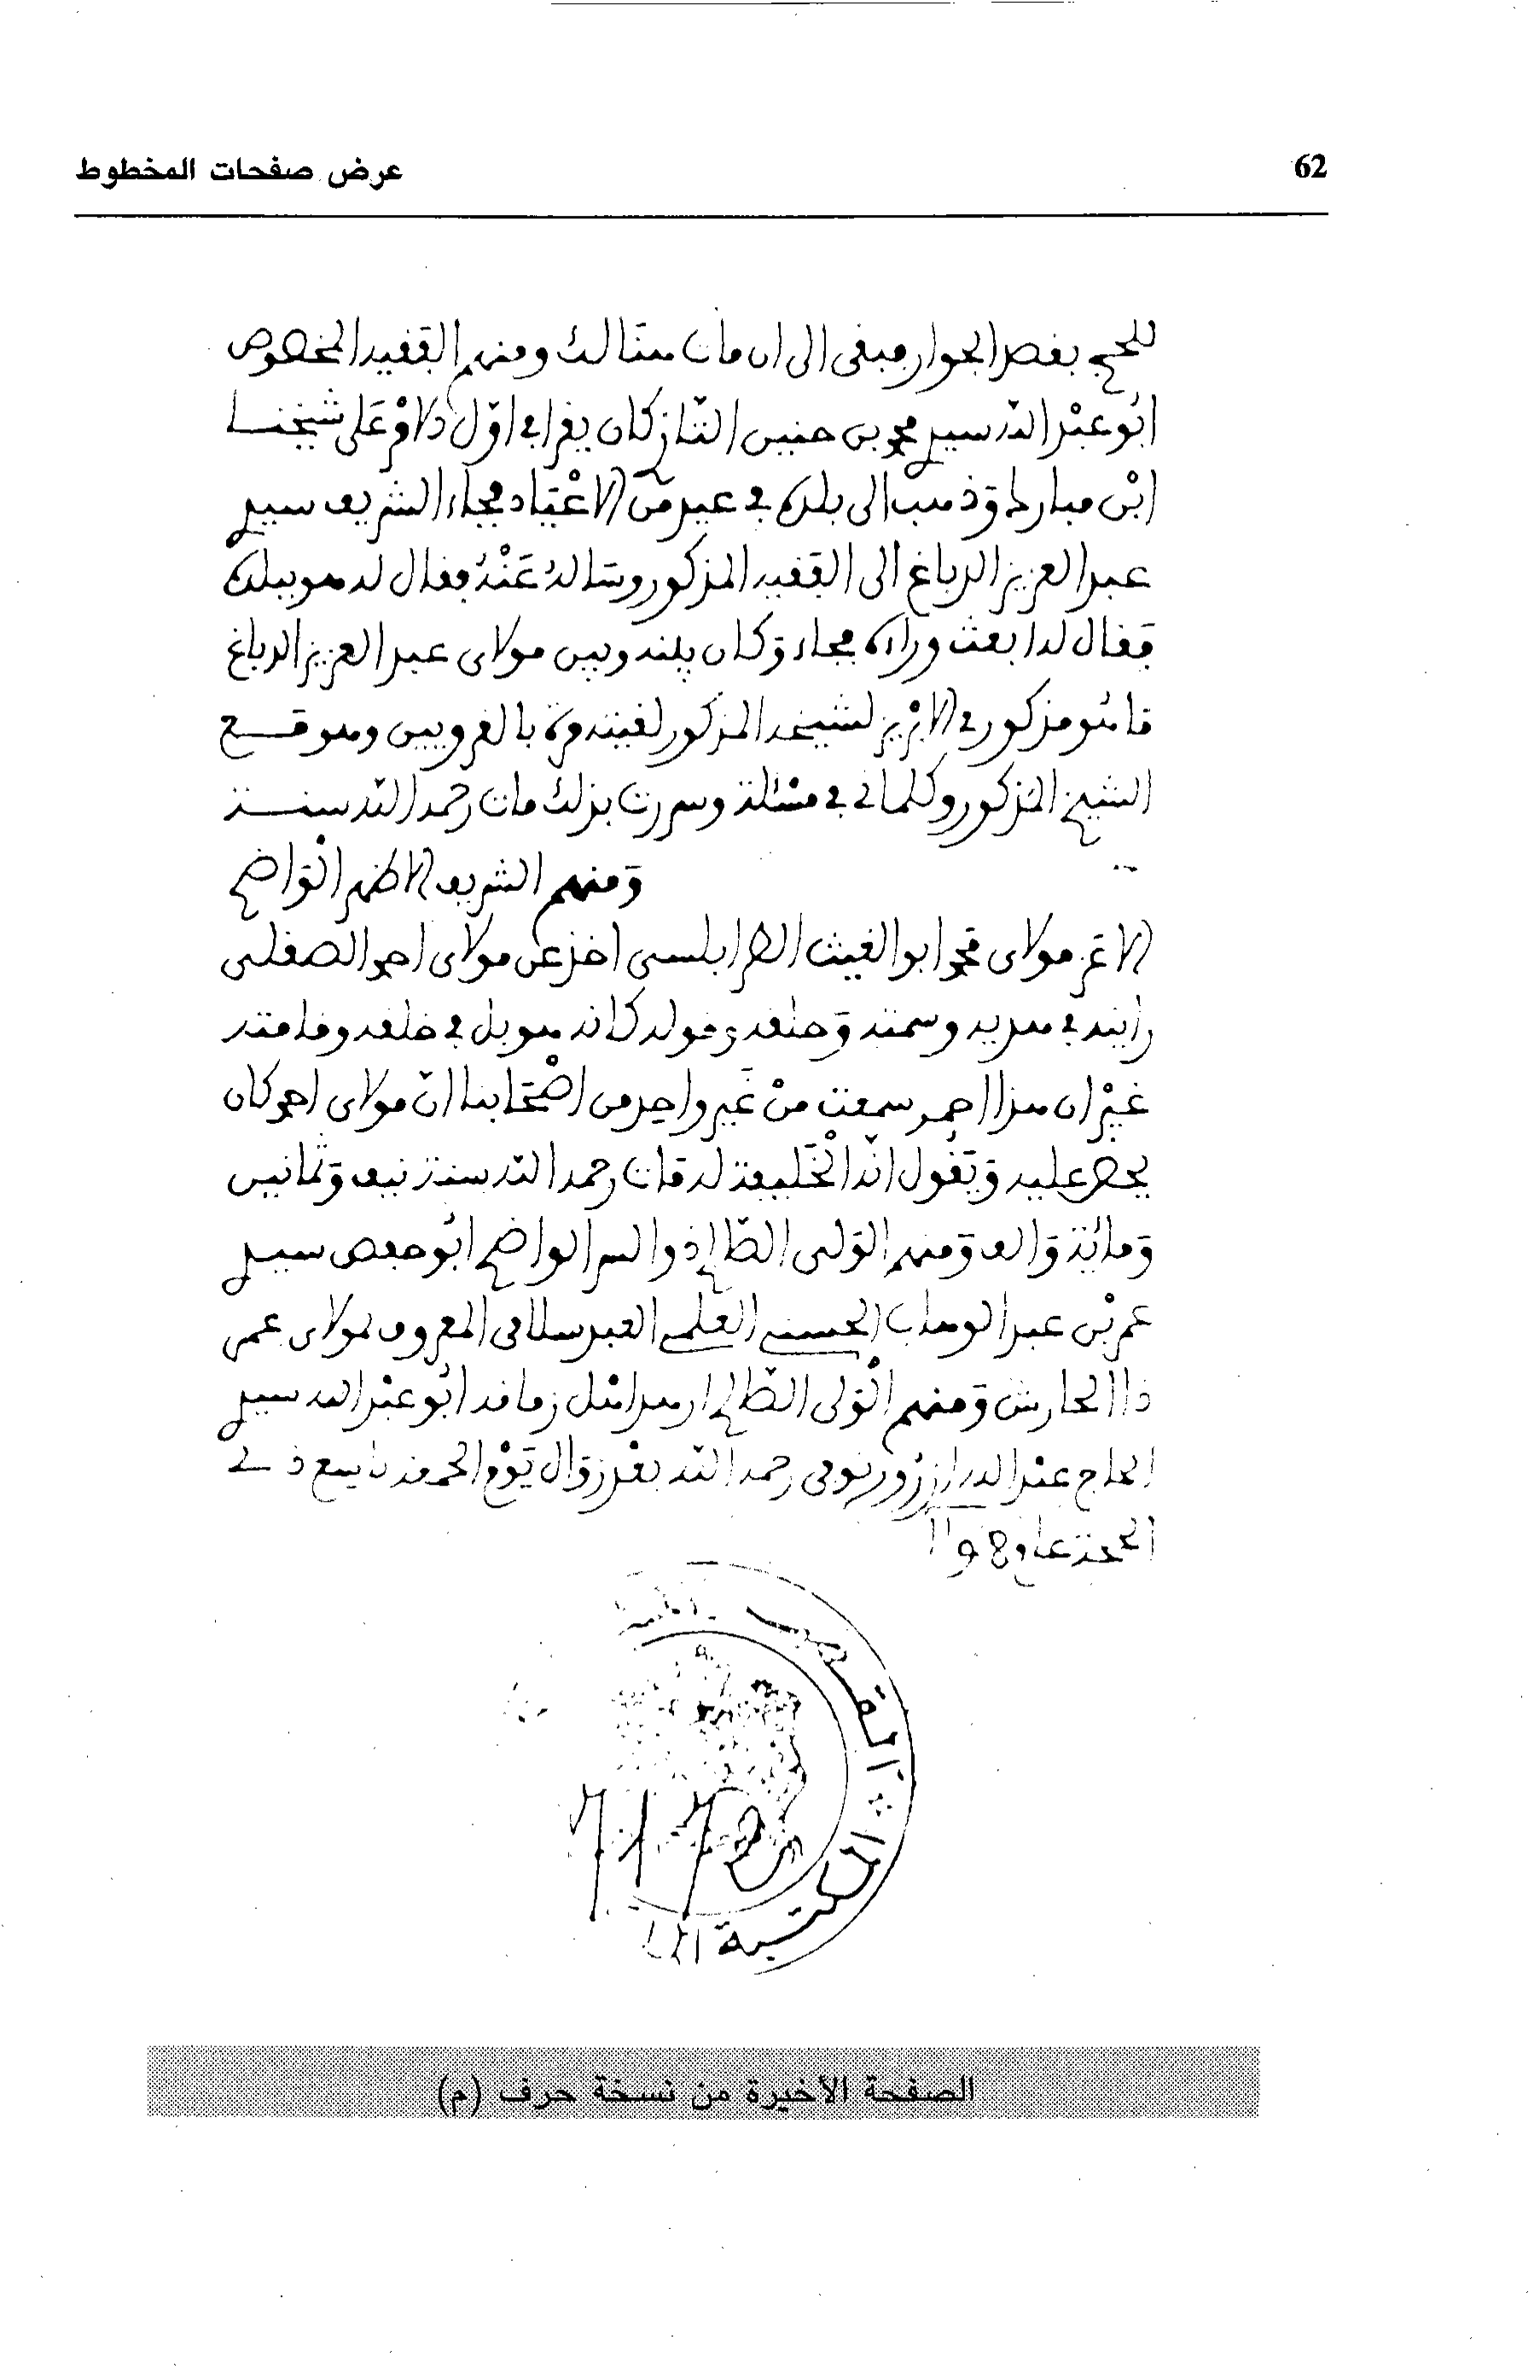 62
عرض صفحات المخطوط
للحج بقصد الجوار فبقي الى ان مات هنالك ومنهم الفقيه المخصوص
ابو عبد الله سيدي محمد بن حنين كان يقرا في اول على شيخنا
ابن مبارك وذهب الى بلده في عيد من الاعياد فجاء الشريف سيدي
عبد العزيز الدباغ الى الفقيه المذكور وساله عنه فقال له هو ببلده
فقال له ابعث وراءه فجاء وكان بينه وبين مولاي عبد العزيز الدباغ
ما هو مذكور في الابريز لشيخه المذكور لقيته مرة بالقرويين وهو مع
الشيخ المذكور وكلماني في مسئلة وسررت بذلك مات رحمه الله سنة
ومنهم الشريف الاطهر الواضح
الاغر مولاي محمد ابو الغيث الطرابلسي اخذ عن مولاي احمد الصقلي
رايته في هديه وسمته وخلقه وقوله كانه هو بل في خلقه وقامته
غير ان هذا احمر سمعت من غير واحد من اصحابنا ان مولاي احمد كان
يحض عليه ويقول انه الخليفة له مات رحمه الله سنة نيف وثمانين
ومائة والف ومنهم الولي الصالح ذو السر الواضح ابو حفص سيدي
عمر بن عبد الوهاب الحسني العلمي العبدسلامي المعروف بمولاي عمر
ومنهم الولي الصالح ازهد اهل زمانه ابو عبد الله سيدي
الحاج توفي رحمه الله بعد زوال يوم الجمعة تاسع ذي
الحجة عام
المكتبة
الصفحة الأخيرة من نسخة حرف (م)